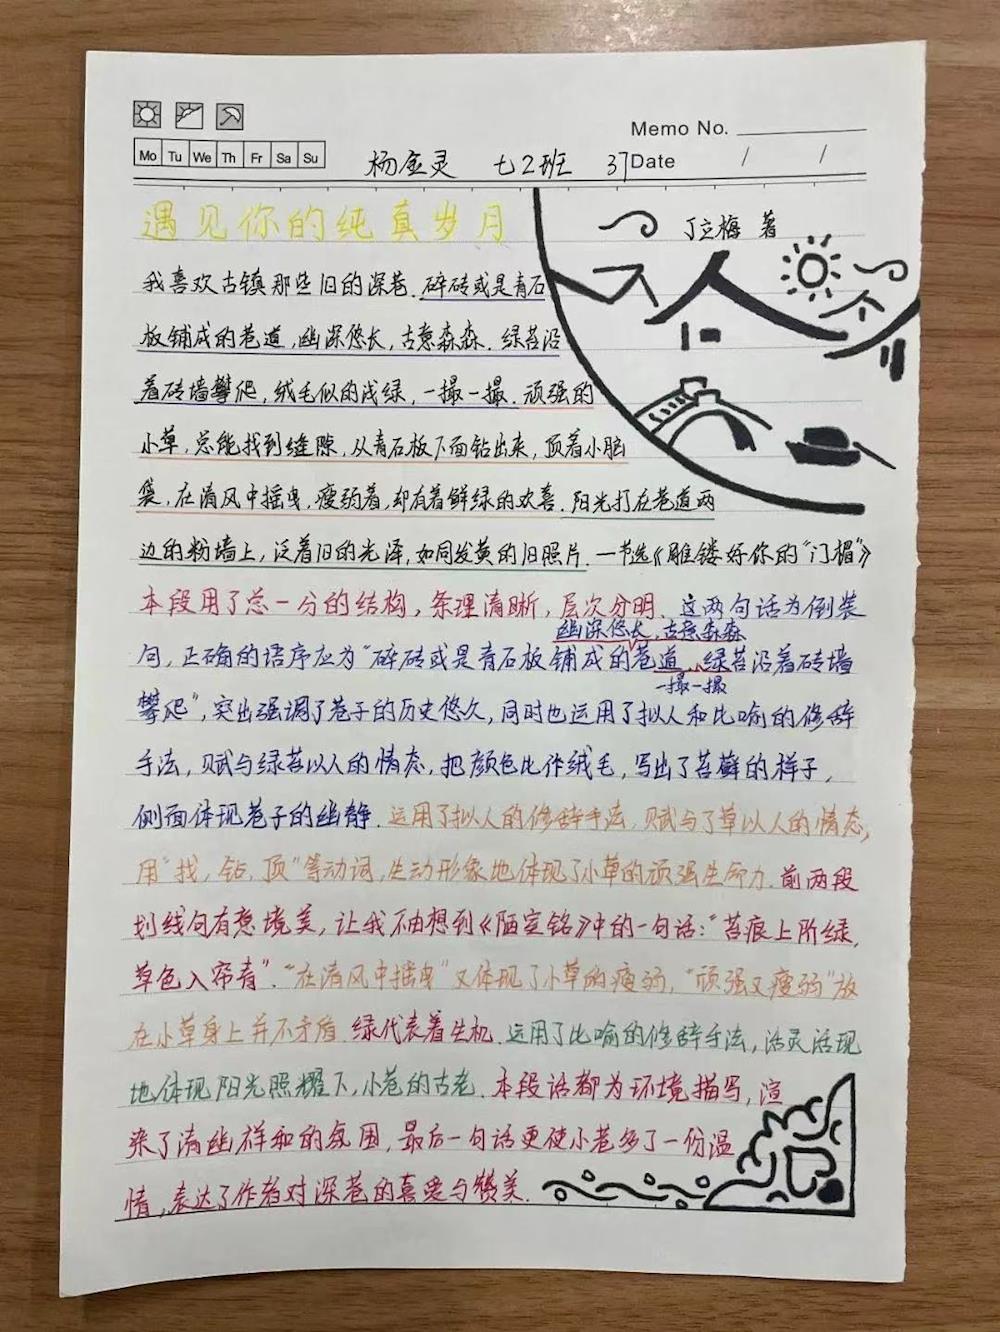 Memo No.
Mo Tu We Th Fr Sa Su
杨金灵 七2班 37 Date / /
遇见你的纯真岁月
丁立梅 著
我喜欢古镇那些旧的深巷.碎砖或是青石
板铺成的巷道,幽深悠长,古意森森.绿苔沿
着砖墙攀爬,绒毛似的浅绿,一撮一撮.顽强的
小草,总能找到缝隙,从青石板下面钻出来,顶着小脑
袋,在清风中摇曳,瘦弱着,却有着鲜绿的欢喜.阳光打在巷道两
边的粉墙上,泛着旧的光泽,如同发黄的旧照片.—节选《雕镂好你的“门楣”》
本段用了总一分的结构,条理清晰,层次分明.这两句话为倒装
幽深悠长,古意森森
句,正确的语序应为“碎砖或是青石板铺成的巷道,绿苔沿着砖墙
一撮一撮
攀爬”,突出强调了巷子的历史悠久,同时也运用了拟人和比喻的修辞
手法,赋与绿苔以人的情态,把颜色比作绒毛,写出了苔藓的样子,
侧面体现巷子的幽静.运用了拟人的修辞手法,赋与了草以人的情态,
用“找,钻,顶”等动词,生动形象地体现了小草的顽强生命力.前两段
划线句有意境美,让我不由想到《陋室铭》中的一句话:“苔痕上阶绿,
草色入帘青”.“在清风中摇曳”又体现了小草的瘦弱,“顽强又瘦弱”放
在小草身上并不矛盾.绿代表着生机.运用了比喻的修辞手法,活灵活现
地体现阳光照耀下,小巷的古老.本段话都为环境描写,渲
染了清幽祥和的氛围,最后一句话更使小巷多了一份温
情,表达了作者对深巷的喜爱与赞美.